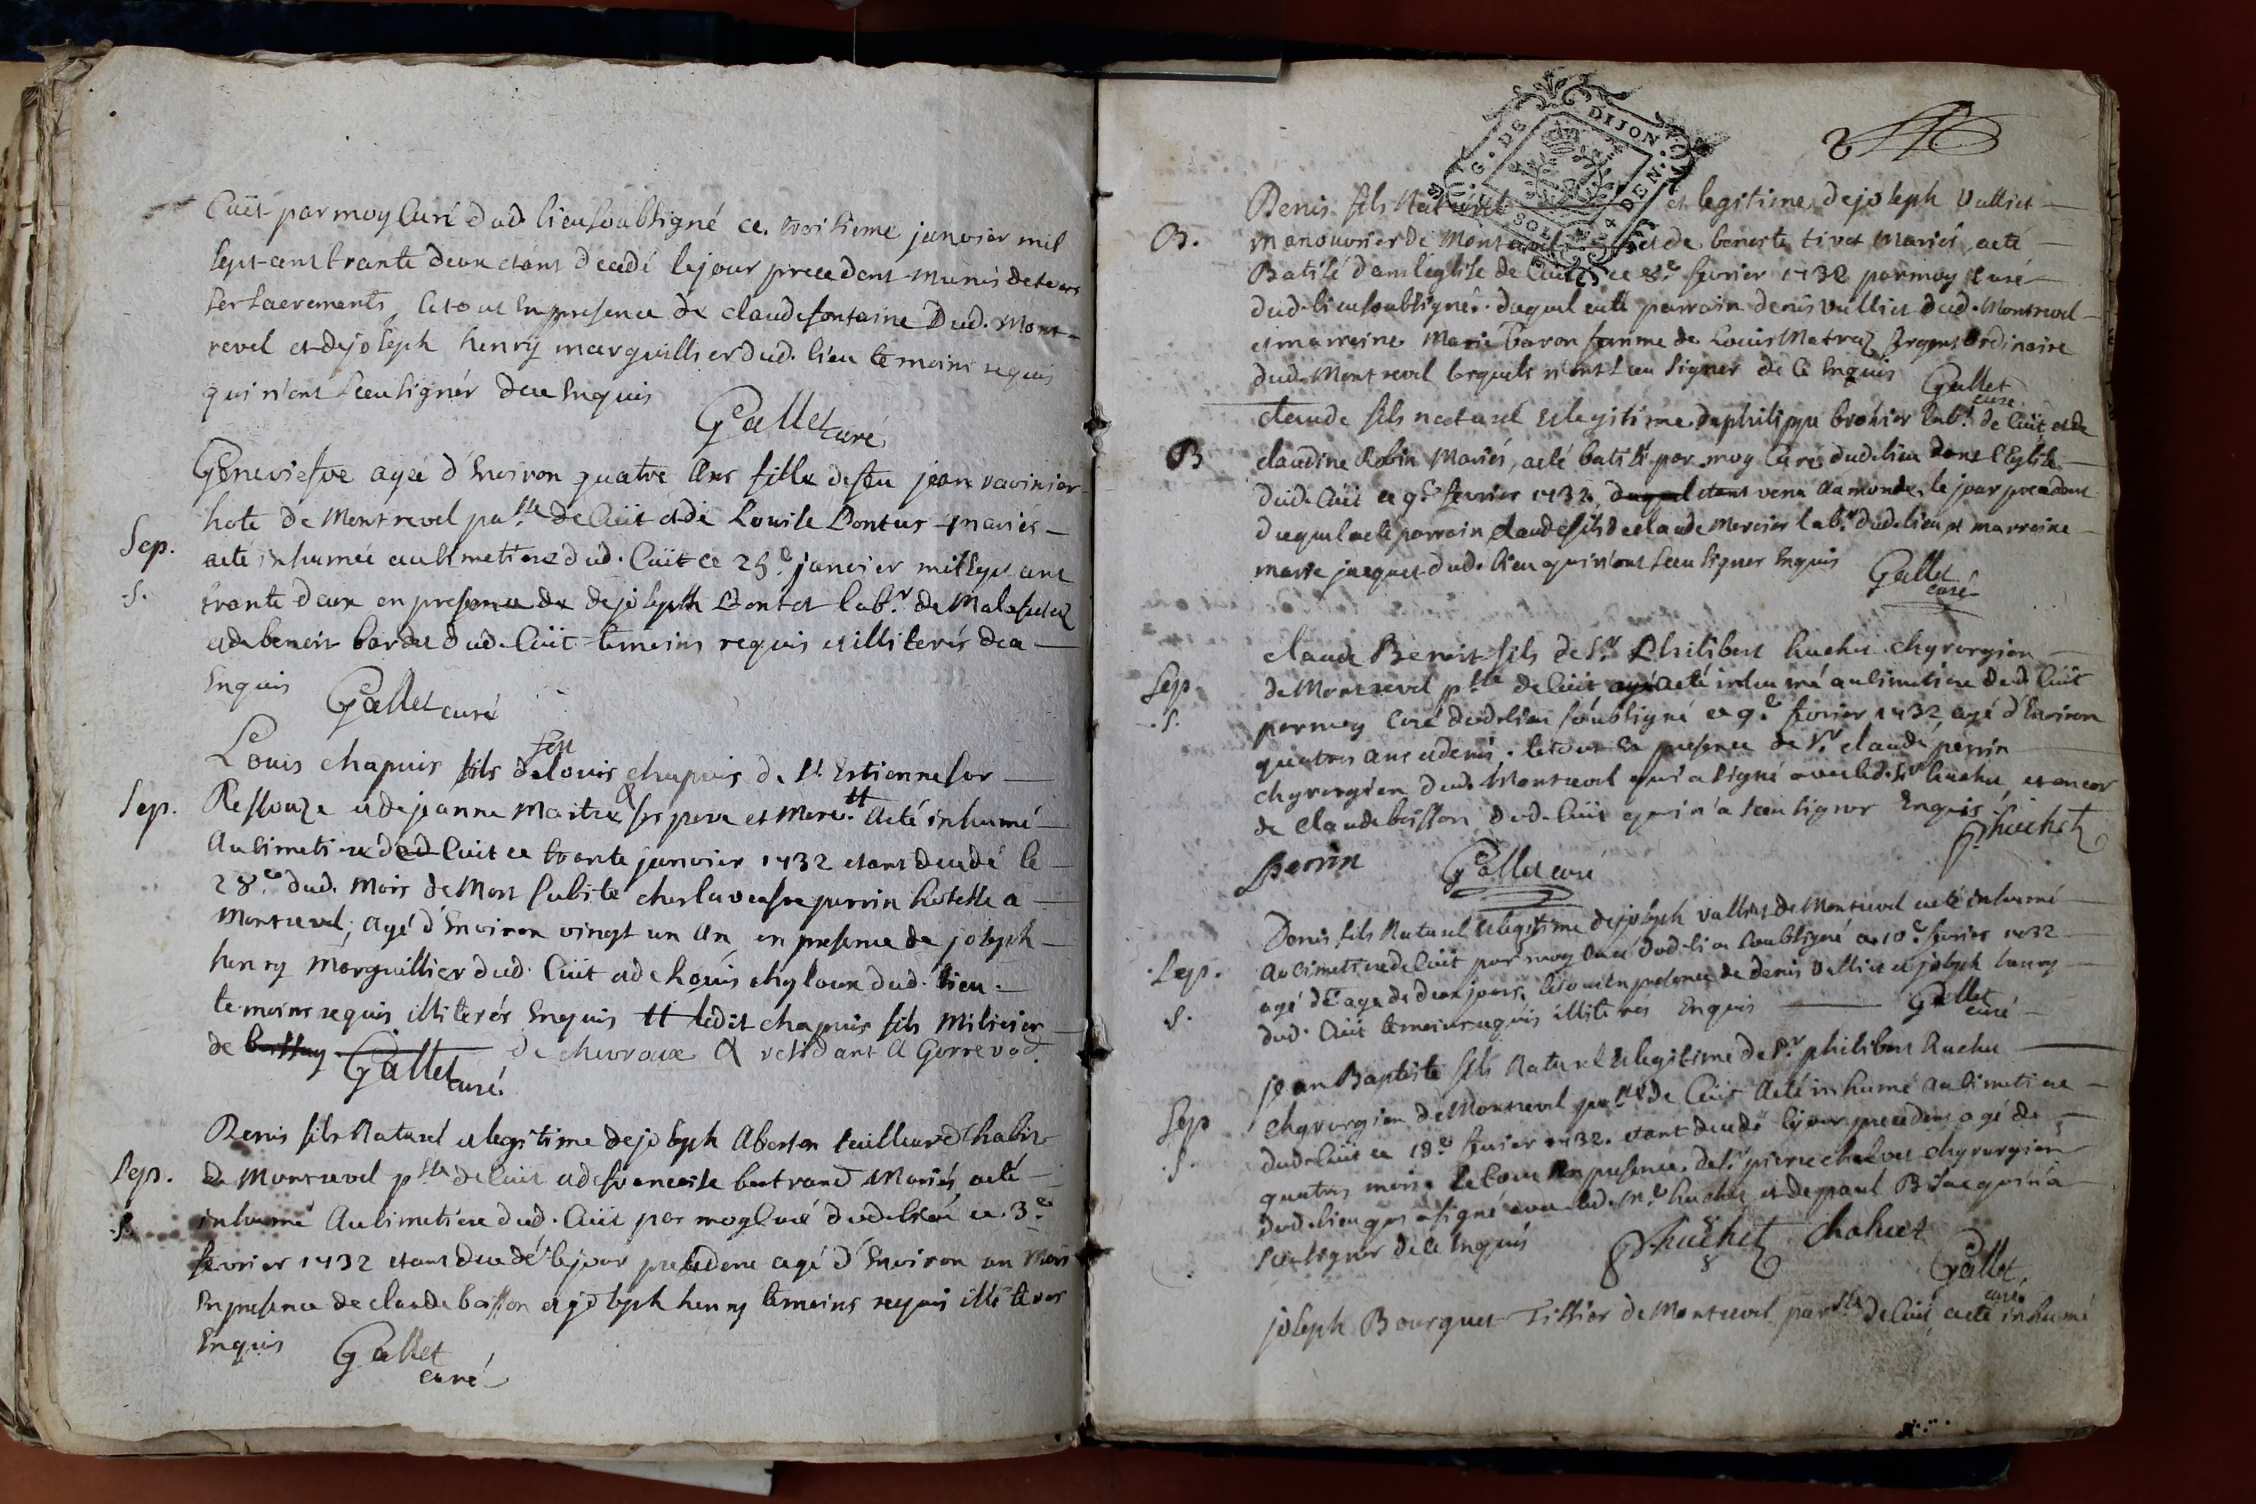 Cuët par moy Curé dud. lieu soubsigné ce troisieme janvier mil
sept cent trante deux etant decedé le jour precedent munis de tous
ses sacrements, le tout En presence de claude fontaine Dud. Mont-
revel et de joseph henry marguillier dud. lieu temoins requis
qui n'ont sceu signér de ce Enquis
Gallet curé
Geneviefve agée d'Environ quatre Ans fille de feu jean ravinier
hote de Montrevel p.sse de Cuët et de Louise Pontus mariés
Sep.
aeté inhumée au Cimetiere dud. Cuët ce 25.e janvier mil sept cent
.S.
trante deux en presence de de joseph Pontet lab.r de Malafretaz
et de benoit bardet dud. Cuët temoins requis et illiterés de ce
Enquis
Gallet curé
feu
Louis chapuis fils de louis chapuis de St Estienne sur
Sep.
Ressouze et de jeanne Maitre ses pere et Mere. tt Aeté inhumé
Au Cimetiere dud Cuët ce trante janvier 1732 etant decedé le
28.e dud. mois de Mort subite chez la veufve perrin hotesse a
Montrevel, Agé d'Environ vingt un An, en presence de joseph
henry Marguillier dud. Cuët et de Louis chyloux dud. lieu
temoins requis illiterés Enquis tt ledit chapuis fils Milicier
de de chevroux & residant A Gorrevod.
Gallet curé
Denis fils Naturel et legitime de joseph Aberton tailleur d'habits
Sep.
de Montrevel p.sse de Cuët et de francoise bertrand Mariés, aeté
.S.
inhumé Au Cimetiere dud. Cuët par moy Curé dudit lieu ce 3.e
fevrier 1732 etant decedé le jour precedent agé d'Environ un Mois
En presence de claude boisson et joseph henry temoins requis illiterés
Enquis
Gallet
curé
G. DE DIJON
SOL 4 DEN.
Denis fils Naturel et legitime de joseph Vulliet
B.
manouvrier de Montrevel et de benoite tivet Mariés, aeté
Batisé dans l'église de Cuët ce 8.e fevrier 1732 par moy Curé
dud. lieu soubsigné. duquel aeté parrain denis Vulliet dud. Montrevel
et marreine Marie baron femme de Louis Matraz sergent Ordinaire
dud. Montrevel lesquels n'ont sceu signer de Ce Enquis
Gallet
curé
claude fils naturel et legitime de philippe brohier lab.r de Cuët et de
B
claudine Robin Mariés, aeté batisé par moy Curé dudit lieu dans l'Eglise
dud. Cuët ce 9.e fevrier 1732, duquel etant venu Au monde le jour precedent
duquel aeté parrain claude fils de claude Mercier lab.r dudit lieu et marreine
marie jacquet dud. lieu qui n'ont sceu signer Enquis
Gallet
curé
claude Benoit fils de S.r Philibert huchet chyrurgien
Sep
de Montrevel p.sse de Cuët aeté inhumé au Cimetiere dud. Cuët
.S.
par moy Curé dudit lieu soubsigné ce 9.e fevrier 1732 agé d'Environ
quatre ans et demi. le tout En presence de S.r claude perrin
chyrurgien dud. Montrevel qui a signé avec led. S.r huchet, et encor
de claude boisson dud. Cuët qui n'a sceu signer Enquis
P huchet
Perrin
Gallet curé
Denis fils Naturel et legitime de joseph vulliet de Montrevel aeté inhumé
Sep.
Au Cimetiere de Cuët par moy Curé dud. lieu soubsigné ce 10.e fevrier 1732
agé de deux jours. le tout en presence de denis Vulliet et joseph henry
S.
dud. Cuët temoins requis illiterés Enquis
Gallet
curé
jean Baptiste fils Naturel et legitime de S.r philibert huchet
Sep
chyrurgien de Montrevel p.sse de Cuët Aeté inhumé Au Cimetiere
dud. Cuët ce 18.e fevrier 1732. etant decedé le jour precedent agé de
.S
quatre mois le tout En presence de S.r pierre chaluet chyrurgien
dud. lieu qui a signé avec led. S.r huchet et de paul B qui n'a
sceu signer de Ce Enquis
P huchet
chaluet
Gallet
curé
joseph Bourguet Tissier de Montrevel par.sse de Cuët aeté inhumé